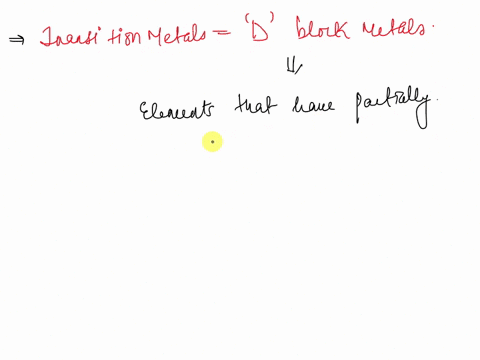 ⇒ Transition Metals = 'D' block metals.
⇓
Elements that have partially.